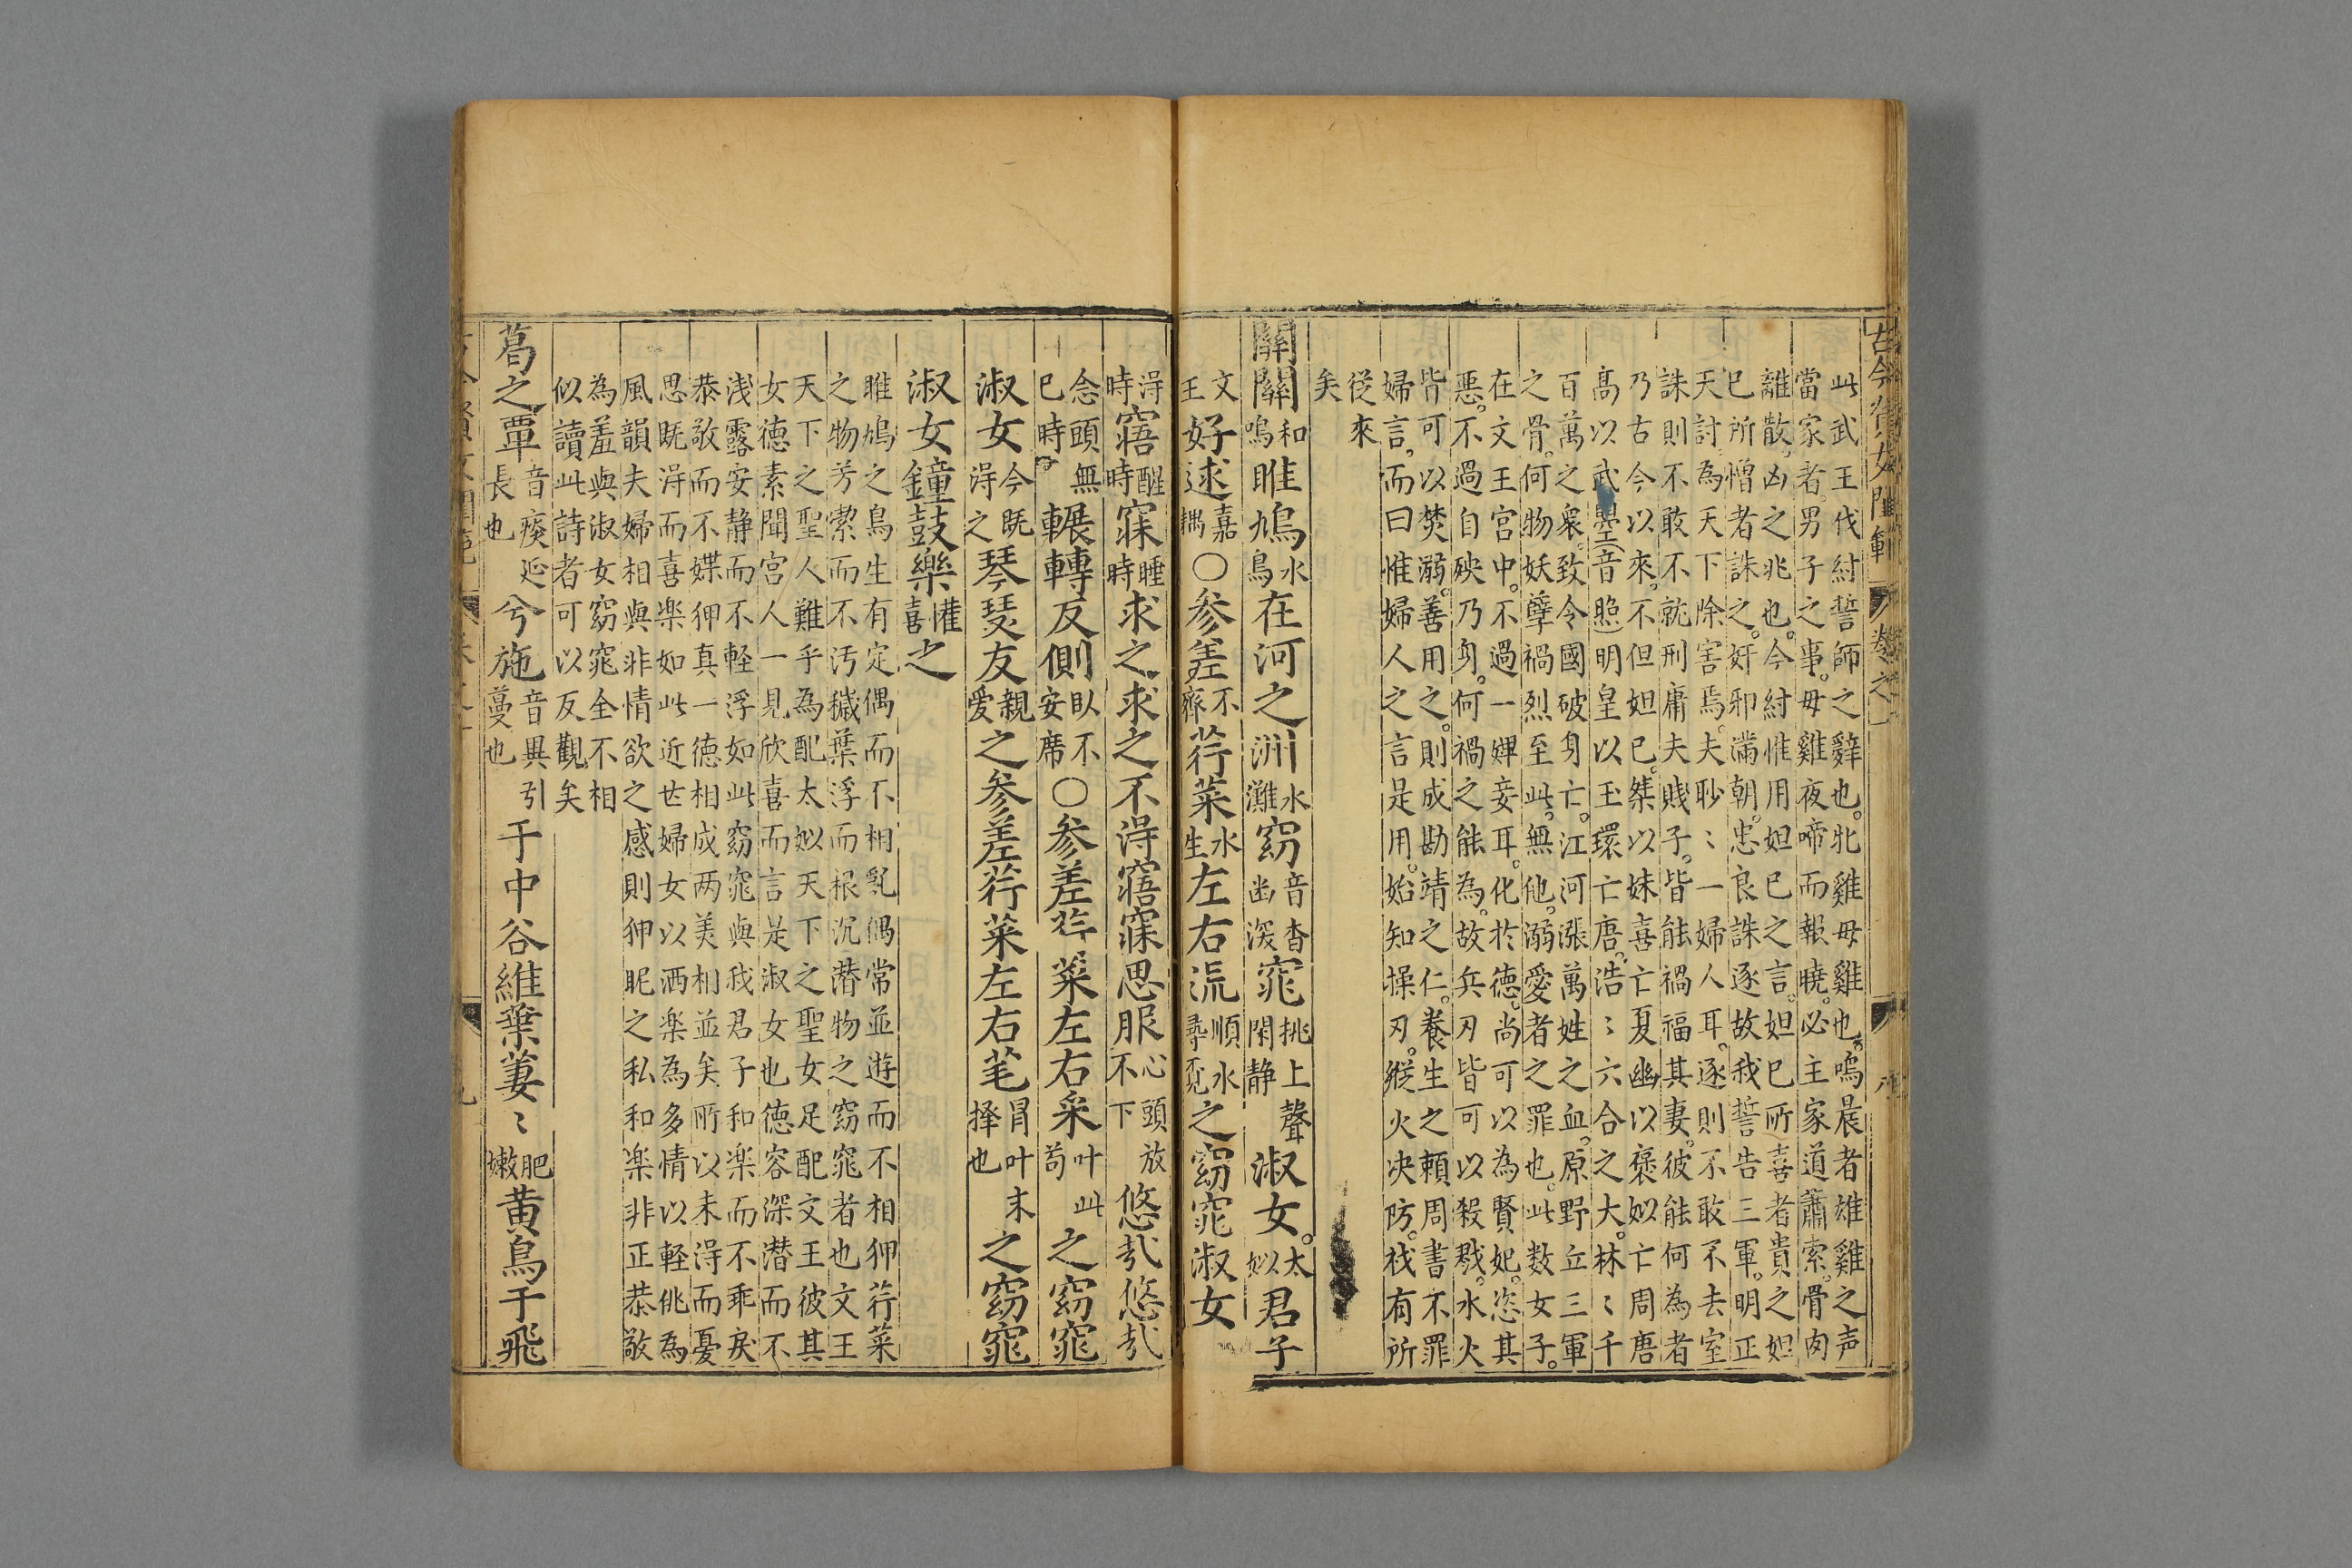 古今賢女閨範 卷之一
此武王伐紂誓師之辝也。牝雞母雞也。鳴晨者雄雞之声
當家者男子之事。毋雞夜啼而報曉。必主家道蕭索。骨肉
離散。凶之兆也。今紂惟用妲已之言。妲已所喜者貴之妲
已所憎者誅之。奸邪滿朝。忠良誅逐故我誓告三軍。明正
天討為天下除害焉。夫眇〻一婦人耳。逐則不敢不去室
誅則不敢不就刑庸夫賎子。皆能禍福其妻。彼能何為者
乃古今以來。不但妲已。桀以妹喜亡夏幽以褒姒亡周唐
髙以武曌(音照)明皇以玉環亡唐。浩〻六合之大。林〻千
百萬之衆。致令國破身亡。江河漲萬姓之血。原野丘三軍
之骨。何物妖孽禍烈至此。無他。溺愛者之罪也。此数女子。
在文王宮中。不過一婢妾耳。化於德。尚可以為賢妃。恣其
惡。不過自殃乃身。何禍之能為。故兵刃皆可以殺戮。水火
皆可以焚溺。善用之。則成勘靖之仁。養生之頼周書不罪
婦言。而曰惟婦人之言是用。始知操刃。縱火决防。有所
從來
矣
關關和鳴雎鳩水鳥在河之洲水灘窈音杳幽深窕挑上聲閑静淑女。太姒君子
文王好逑嘉耦○参差不齊荇菜水生左右流順水尋覓之窈窕淑女
淂時寤醒時寐睡時求之求之不淂寤寐思服心頭放不下悠哉悠哉
念頭無已時輾轉反側卧不安席○参差荇菜左右采叶此苟之窈窕
淑女今既淂之琴瑟友親愛之参差荇菜左右芼叶末擇也之窈窕
淑女鐘鼓樂懽喜之
雎鳩之鳥生有定偶而不相亂偶常並遊而不相狎荇菜
之物芳潔而不汚穢葉浮而根沉潜物之窈窕者也文王
天下之聖人難乎為配太姒天下之聖女足配文王彼其
女德素聞宮人一見欣喜而言是淑女也德容深潜而不
浅露安静而不軽浮如此窈窕與我君子和楽而不乖戾
恭敬而不媟狎真一德相成两美相並矣所以未淂而憂
思既淂而喜楽如此近世婦女以洒楽為多情以軽佻為
風韻夫婦相與非情欲之感則狎昵之私和楽非正恭敬
為羞與淑女窈窕全不相
似讀此詩者可以反觀矣
葛之覃音痰延長也兮施音異引蔓也于中谷維葉萋〻肥嫩黄鳥于飛